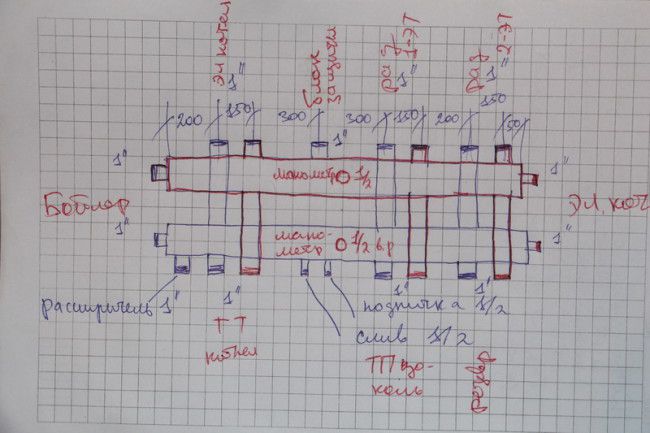 эл котел
1"
Блок
защиты
раз
1-ЭТ
1"
раз
2-ЭТ
1"
200
150
300
300
150
200
150
50
1"
1"
1"
манометр 1/2
Бойлер
Эл. кот
1"
мано-
метр 1/2 вр
1"
расширитель 1"
1"
1"
1"
подпитка 1/2
слив 1/2
ТТ
котел
ТП цо-
коль
резерв